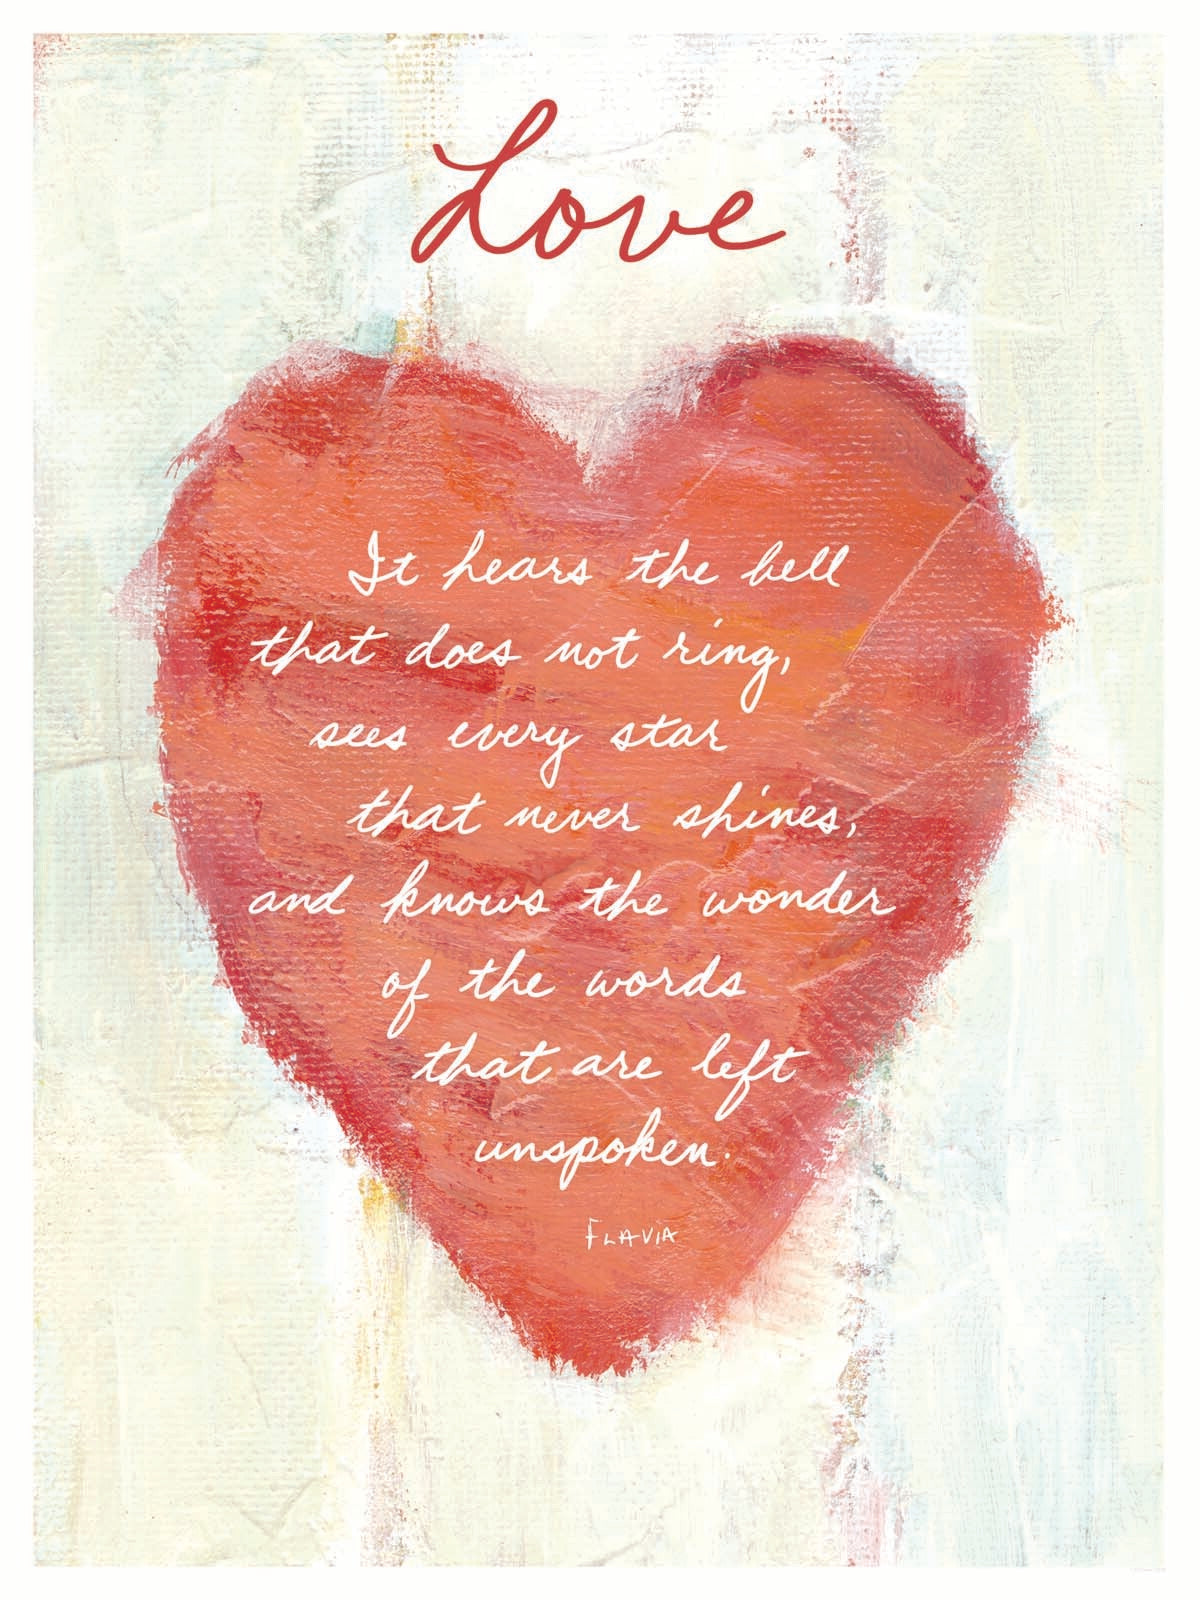 Love
It hears the bell
that does not ring,
sees every star
that never shines,
and knows the wonder
of the words
that are left
unspoken.
FLAVIA